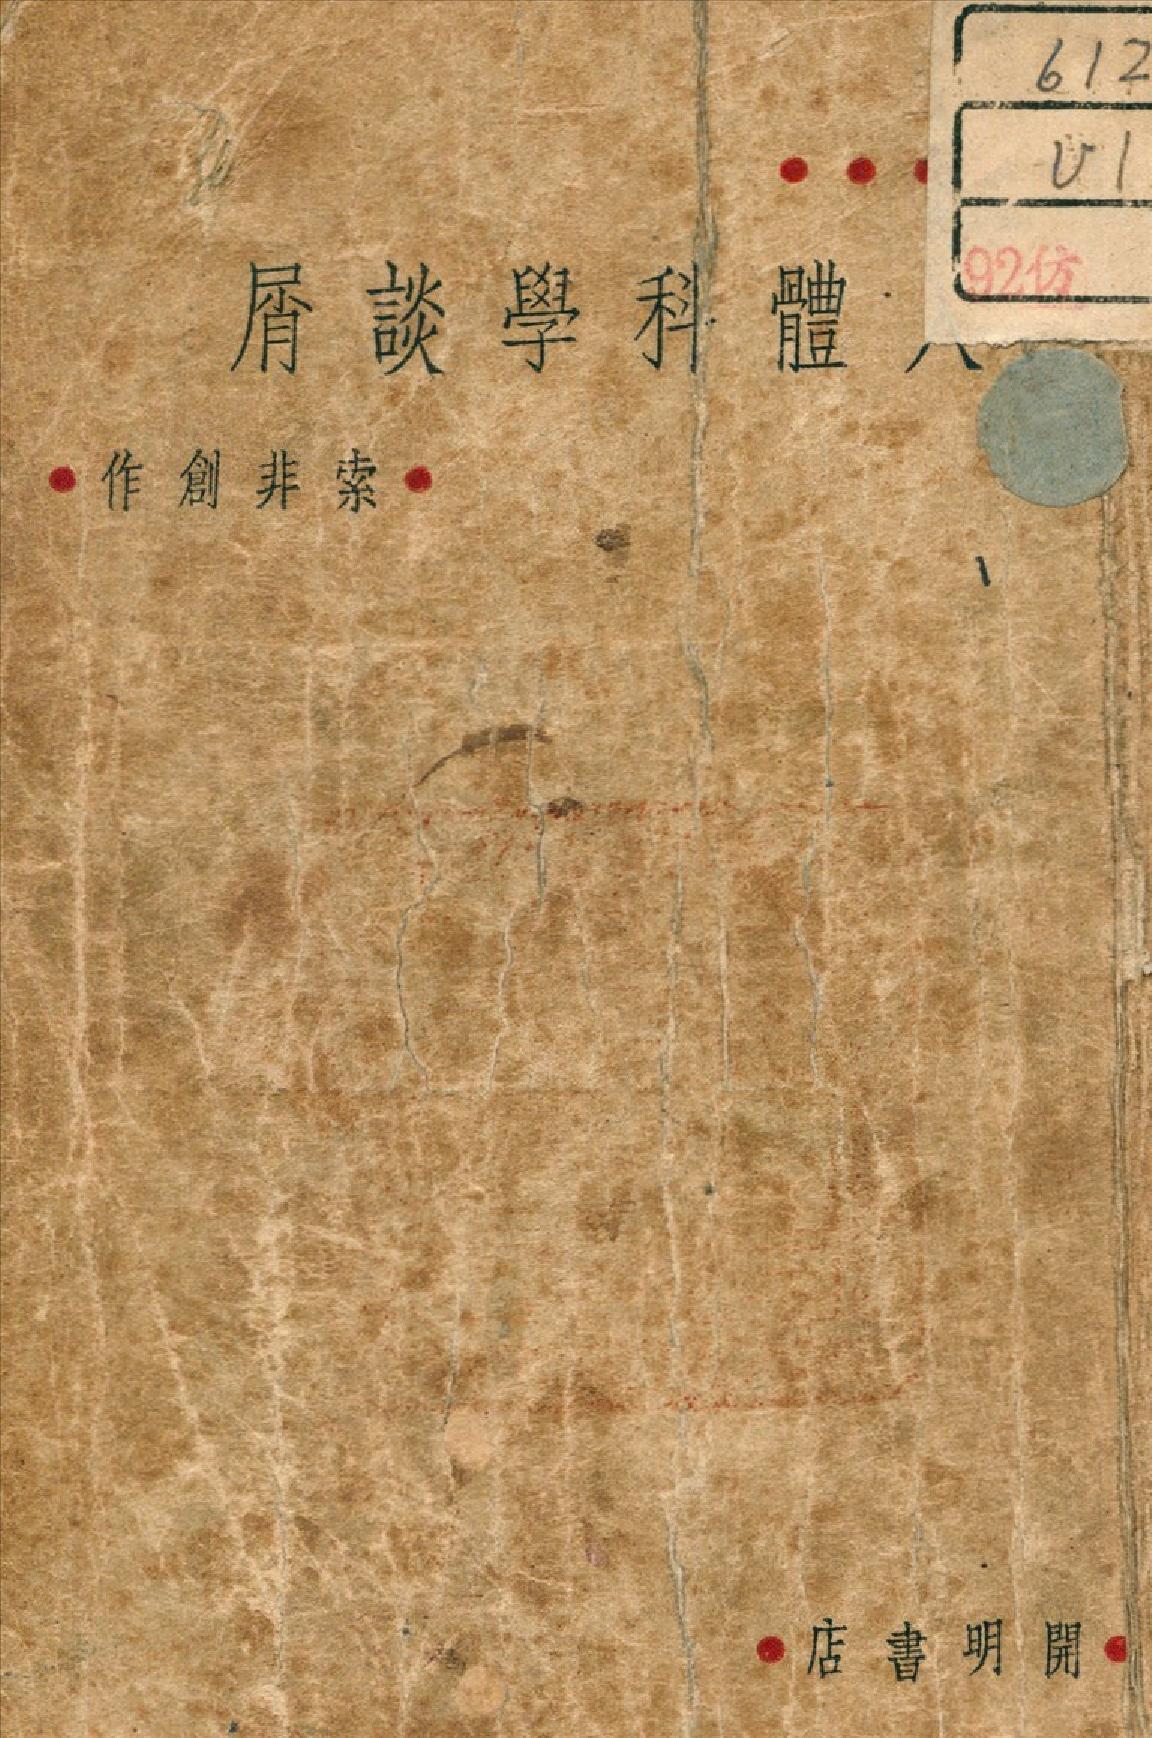 612
U1
92仿
人體科學談屑
索非創作
開明書店